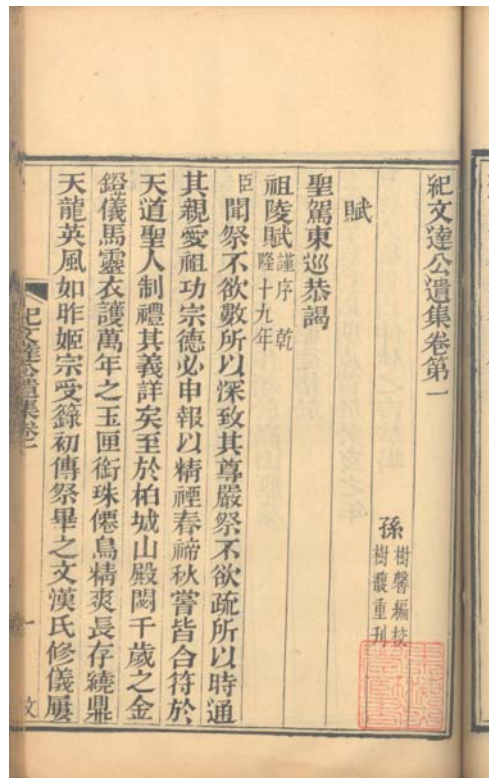 紀文達公遺集卷第一
孫
樹馨編校
樹馥重刊
賦
聖駕東巡恭謁
祖陵賦謹序 乾隆十九年
臣聞祭不欲數所以深致其尊嚴祭不欲疏所以時通
其親愛祖功宗德必申報以精禋春禘秋嘗皆合符於
天道聖人制禮其義詳矣至於柏城山殿閟千歲之金
鐙儀馬靈衣護萬年之玉匣銜珠僊鳥精爽長存繞鼎
天龍英風如昨姬宗受籙初傳祭畢之文漢氏修儀屢
紀文達公遺集卷一
一
文